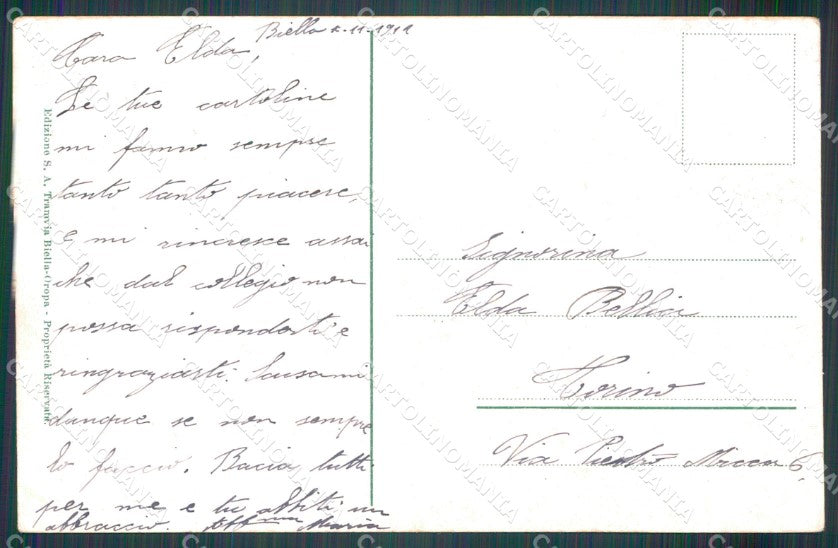 Biella 5-11-1919
Cara Elda,
Le tue cartoline
mi fanno sempre
tanto tanto piacere,
e mi rincresce assai
che dal collegio non
possa risponderti e
ringraziarti. Scusami
dunque se non sempre
lo faccio. Bacia tutti
per me e tu abbiti un
abbraccio. aff.ma Maria
Edizione S. A. Tramvia Biella-Oropa - Proprietà Riservata.
Signorina
Elda Bellia
Torino
Via Pietro Micca 6,
CARTOLINOMANIA